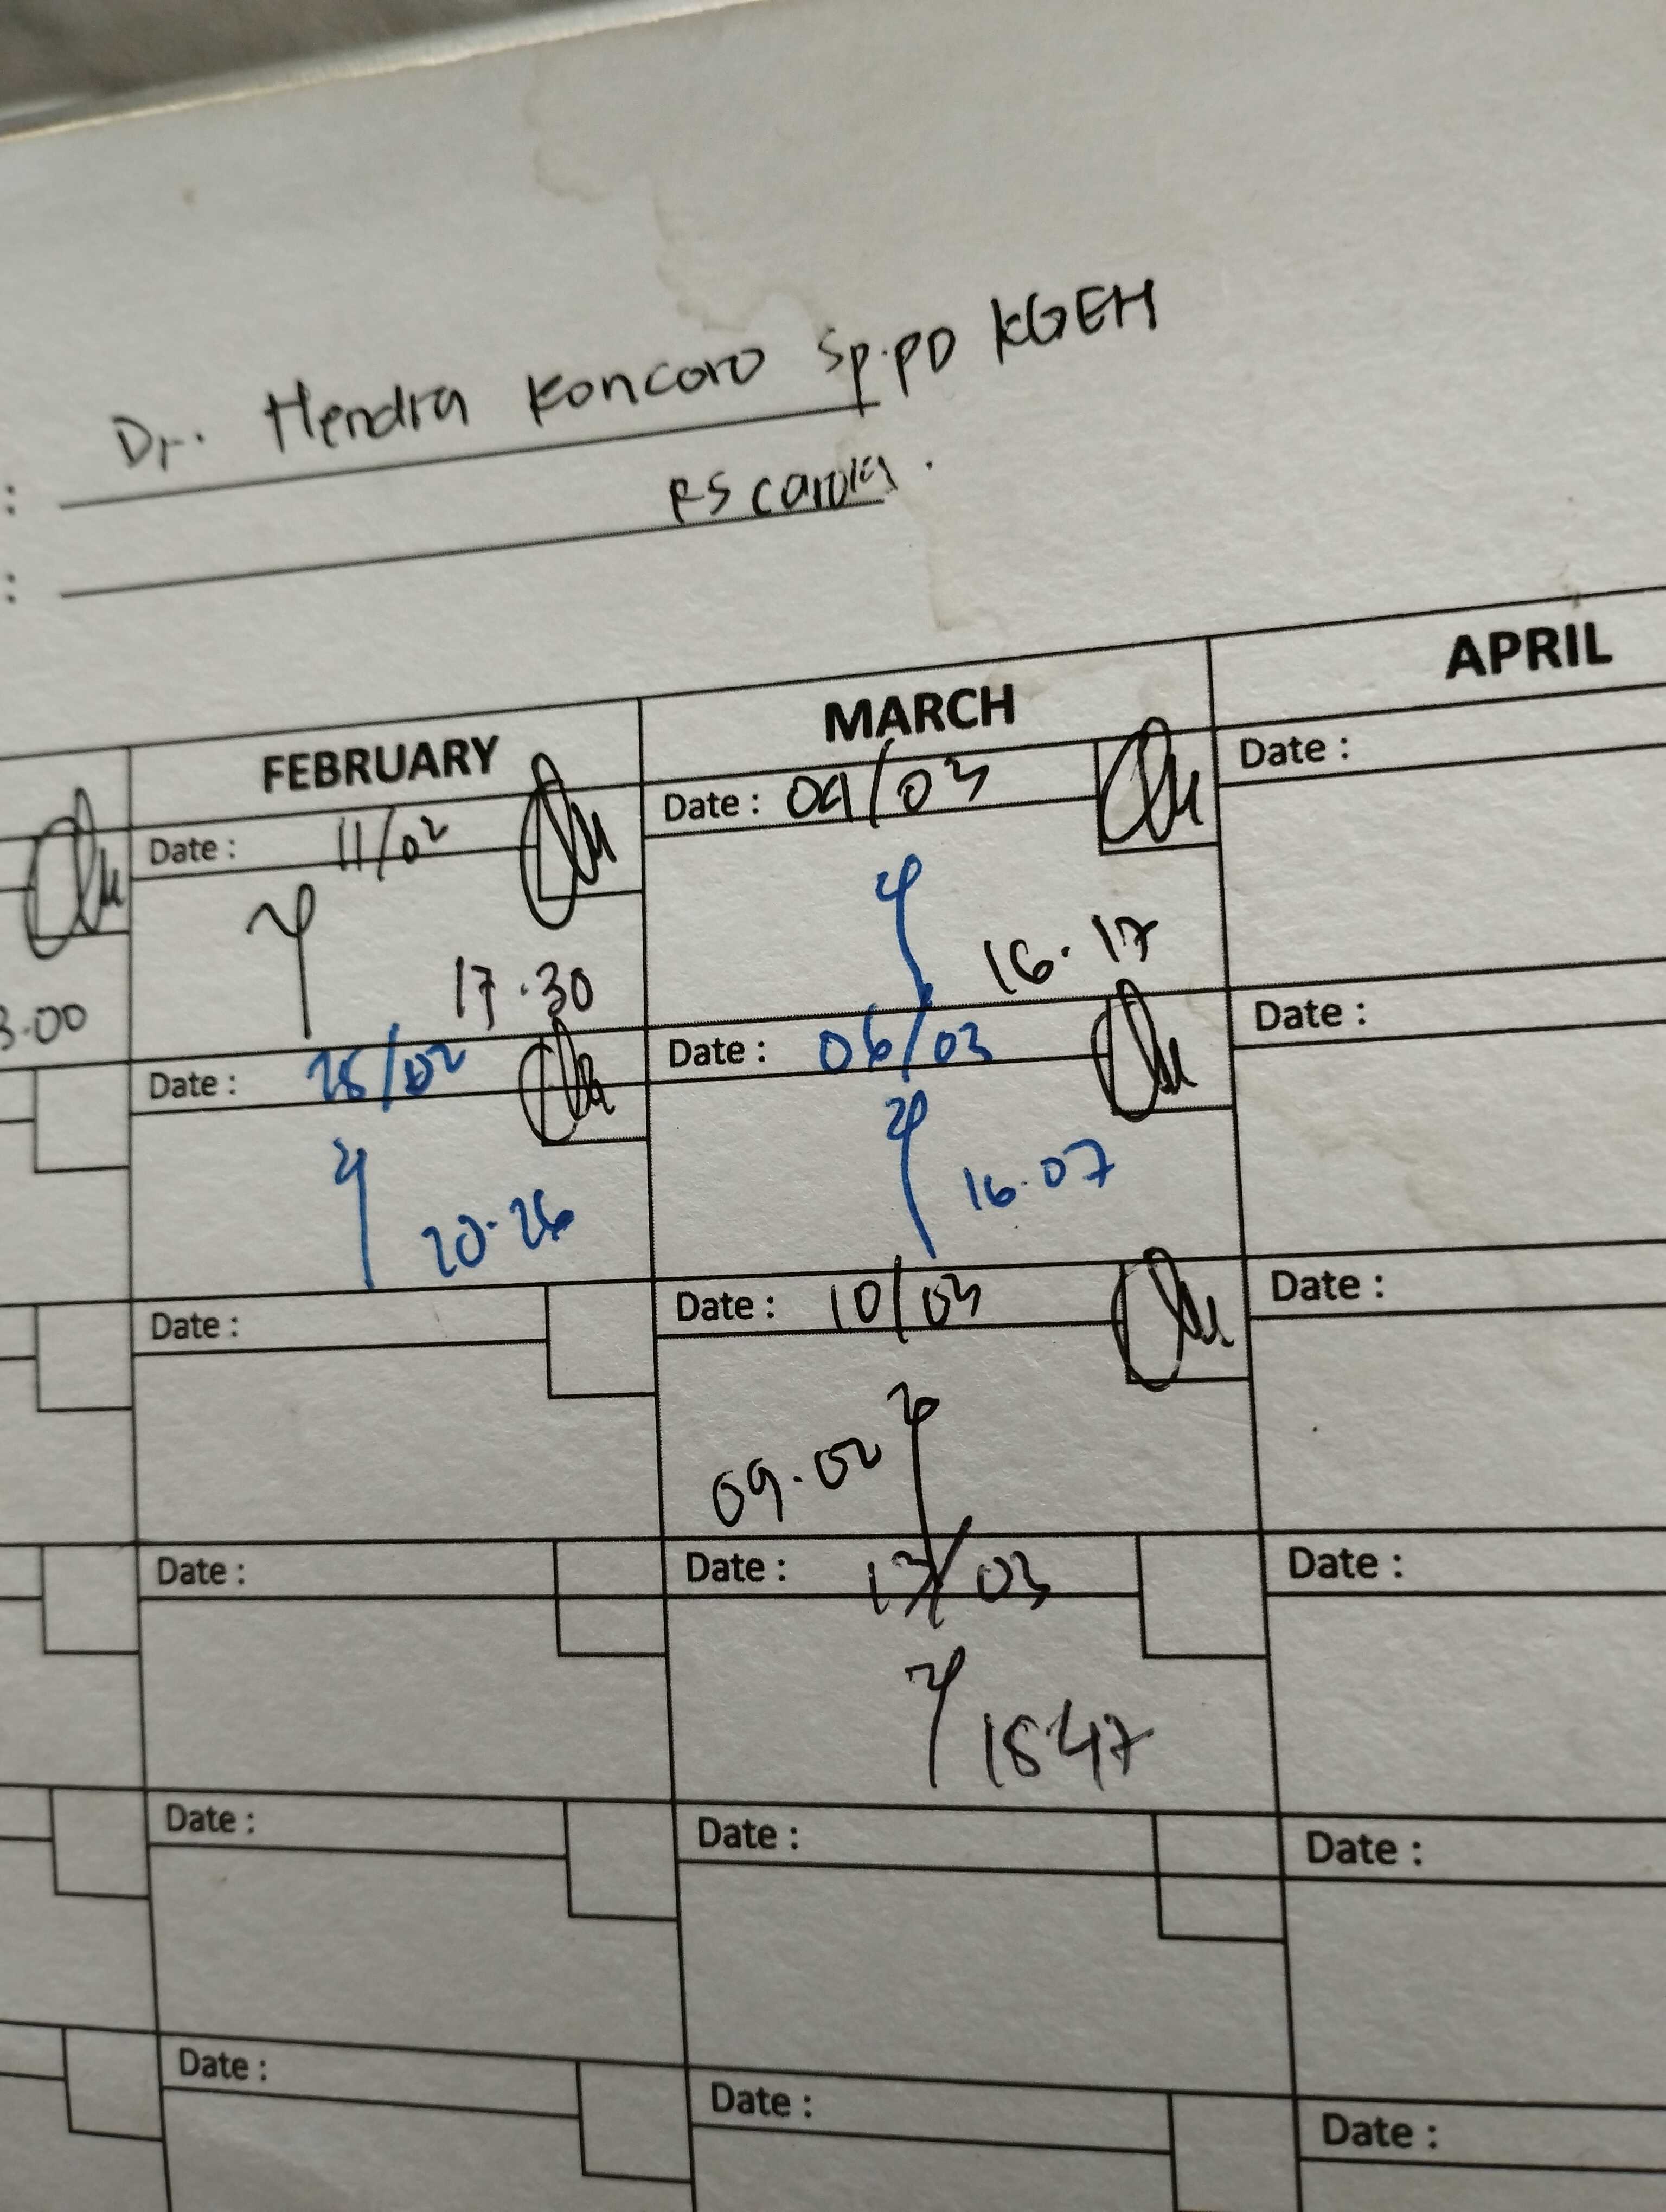 : Dr. Hendra Koncoro Sp.PD KGEH
: RS carolus.
FEBRUARY MARCH APRIL
Date : 11/02 Date : 04/03 Date :
17.30 16.17
3.00
Date : 25/02 Date : 06/03 Date :
20.26 16.07
Date : Date : 10/03 Date :
09.02
Date : Date : 13/03 Date :
1847
Date : Date : Date :
Date : Date : Date :